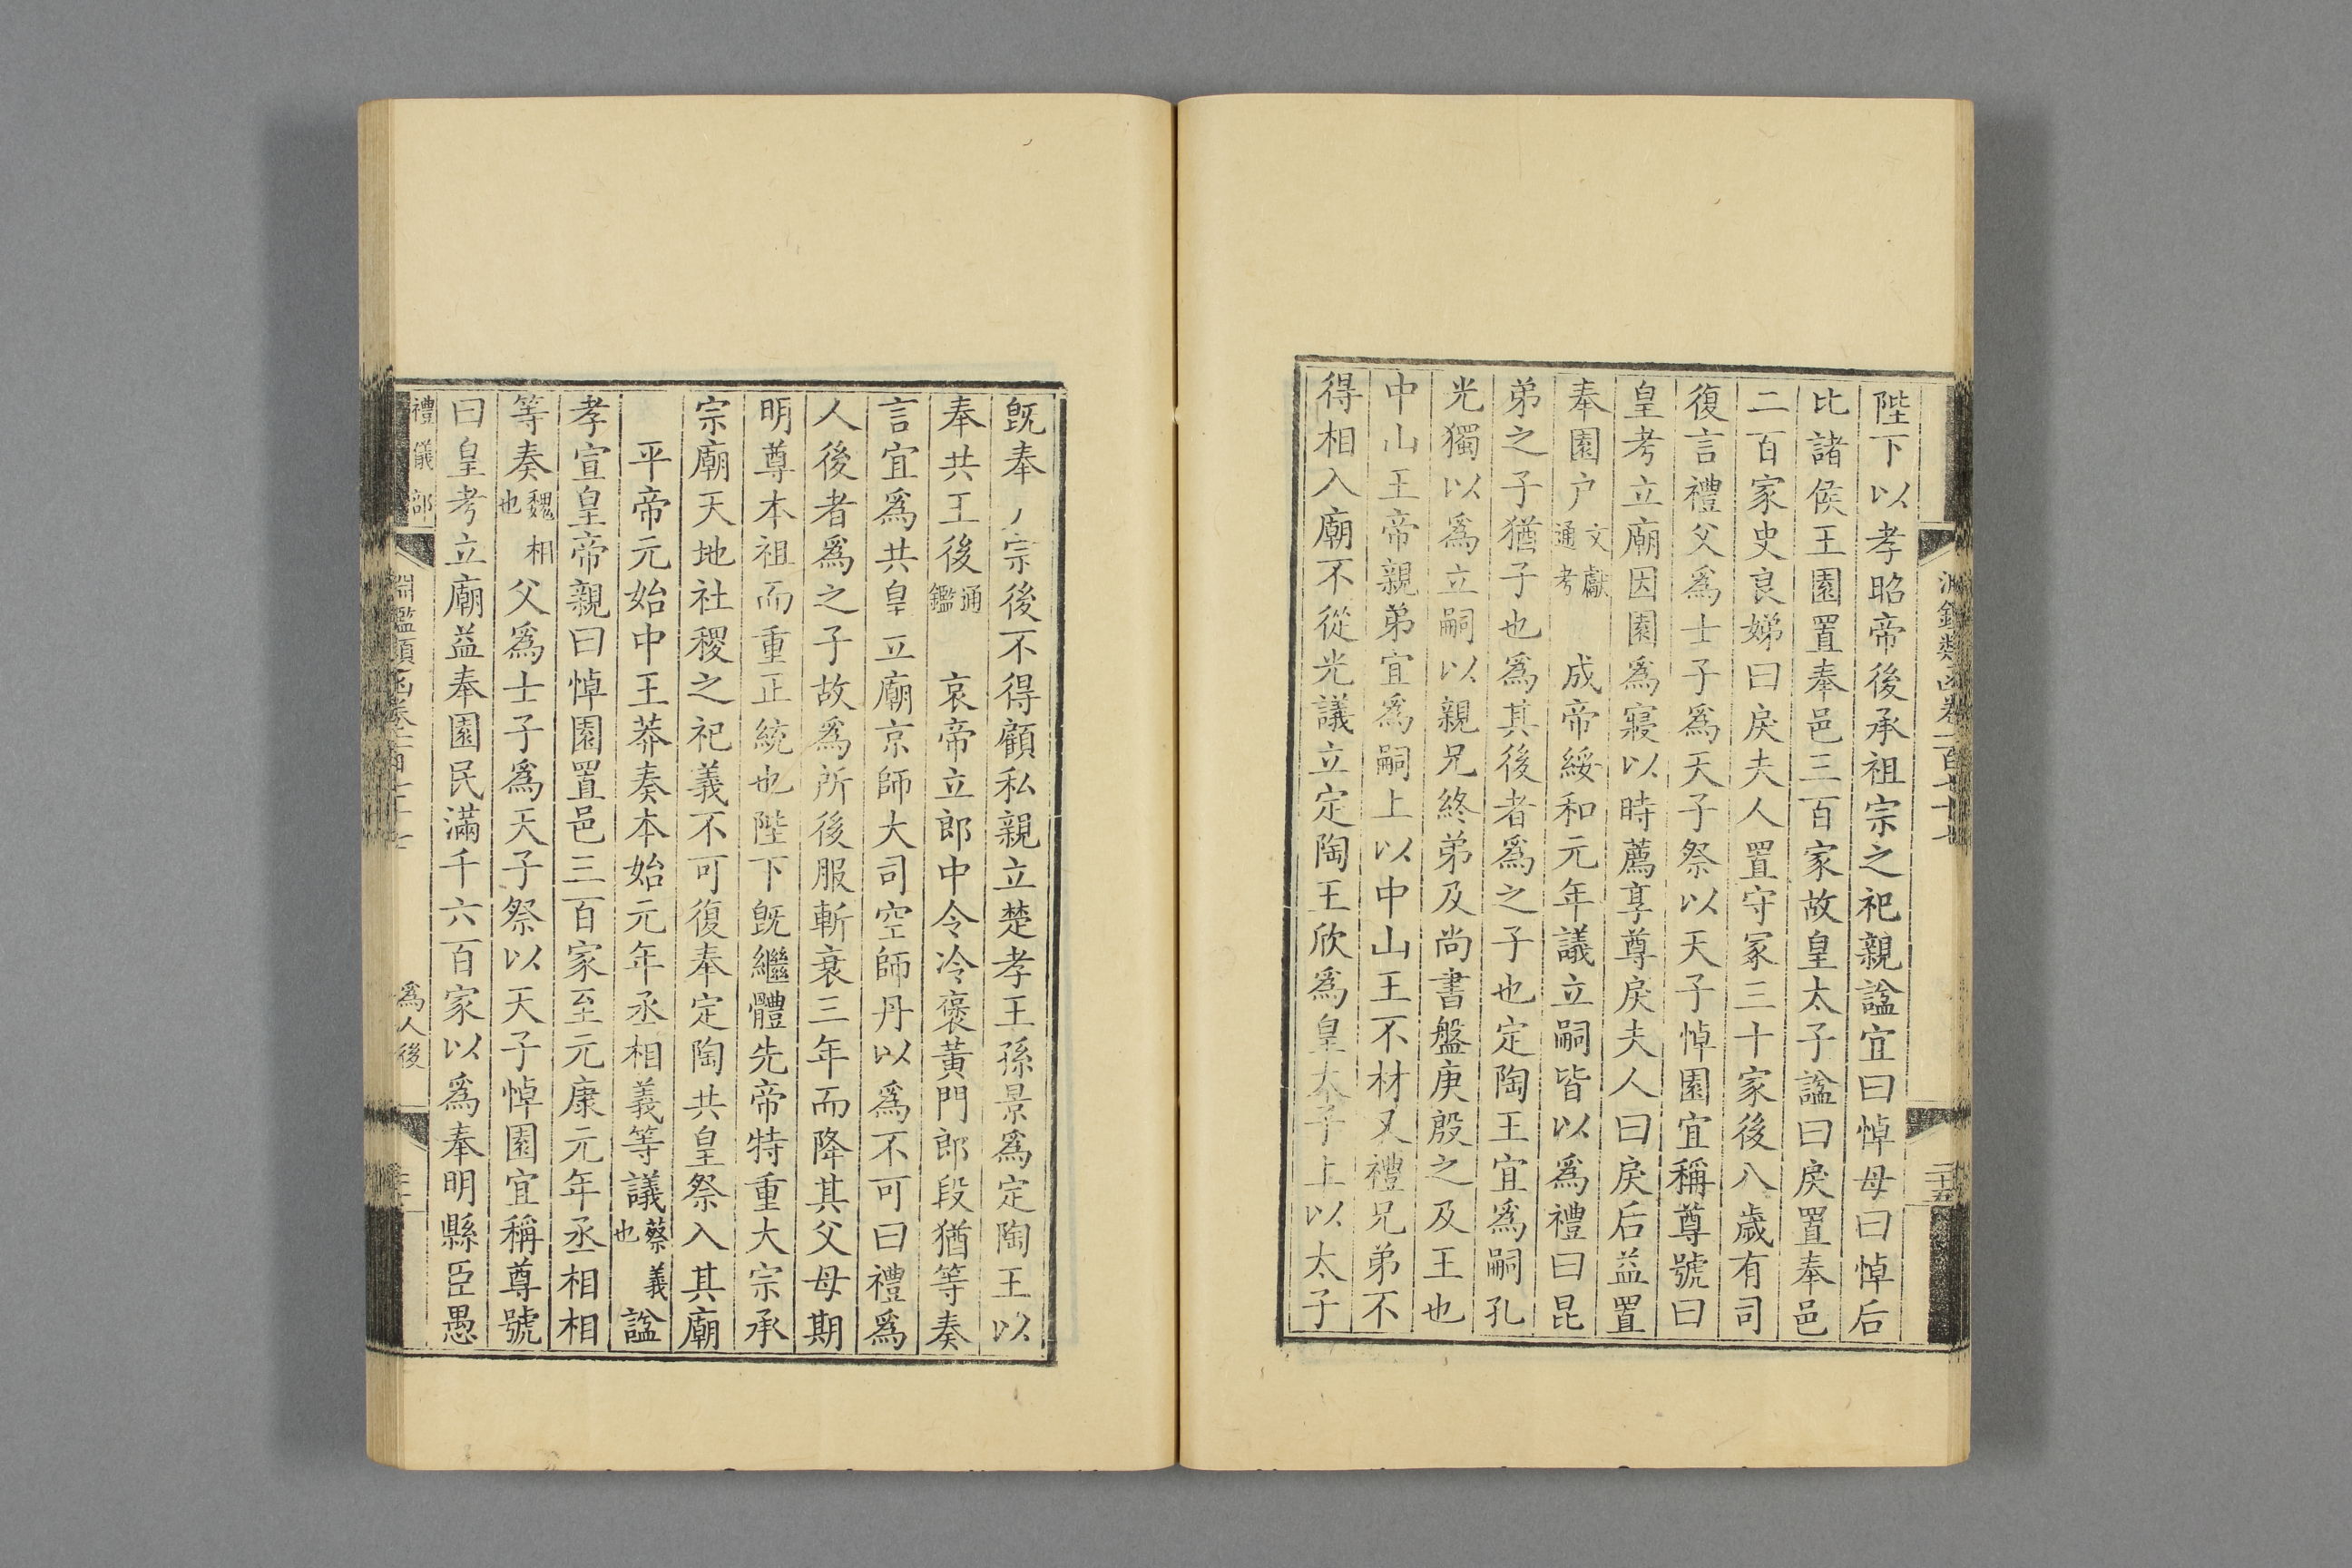 陛下以孝昭帝後承祖宗之祀親諡宜曰悼母曰悼后
比諸侯王園置奉邑三百家故皇太子諡曰戾置奉邑
二百家史良娣曰戾夫人置守冢三十家後八歲有司
復言禮父爲士子爲天子祭以天子悼園宜稱尊號曰
皇考立廟因園爲寢以時薦享尊戾夫人曰戾后益置
奉園户文獻通考 成帝綏和元年議立嗣皆以爲禮曰昆
弟之子猶子也爲其後者爲之子也定陶王宜爲嗣孔
光獨以爲立嗣以親兄終弟及尚書盤庚殷之及王也
中山王帝親弟宜爲嗣上以中山王不材又禮兄弟不
得相入廟不從光議立定陶王欣爲皇太子上以太子
既奉宗後不得顧私親立楚孝王孫景爲定陶王以
奉共王後通鑑 哀帝立郎中令冷褒黃門郎段猶等奏
言宜爲共皇立廟京師大司空師丹以爲不可曰禮爲
人後者爲之子故爲所後服斬衰三年而降其父母期
明尊本祖而重正統也陛下既繼體先帝特重大宗承
宗廟天地社稷之祀義不可復奉定陶共皇祭入其廟
平帝元始中王莽奏本始元年丞相義等議蔡義也諡
孝宣皇帝親曰悼園置邑三百家至元康元年丞相相
等奏魏相也父爲士子爲天子祭以天子悼園宜稱尊號
曰皇考立廟益奉園民滿千六百家以爲奉明縣臣愚
禮儀部 淵鑑類函卷一百七十七 爲人後